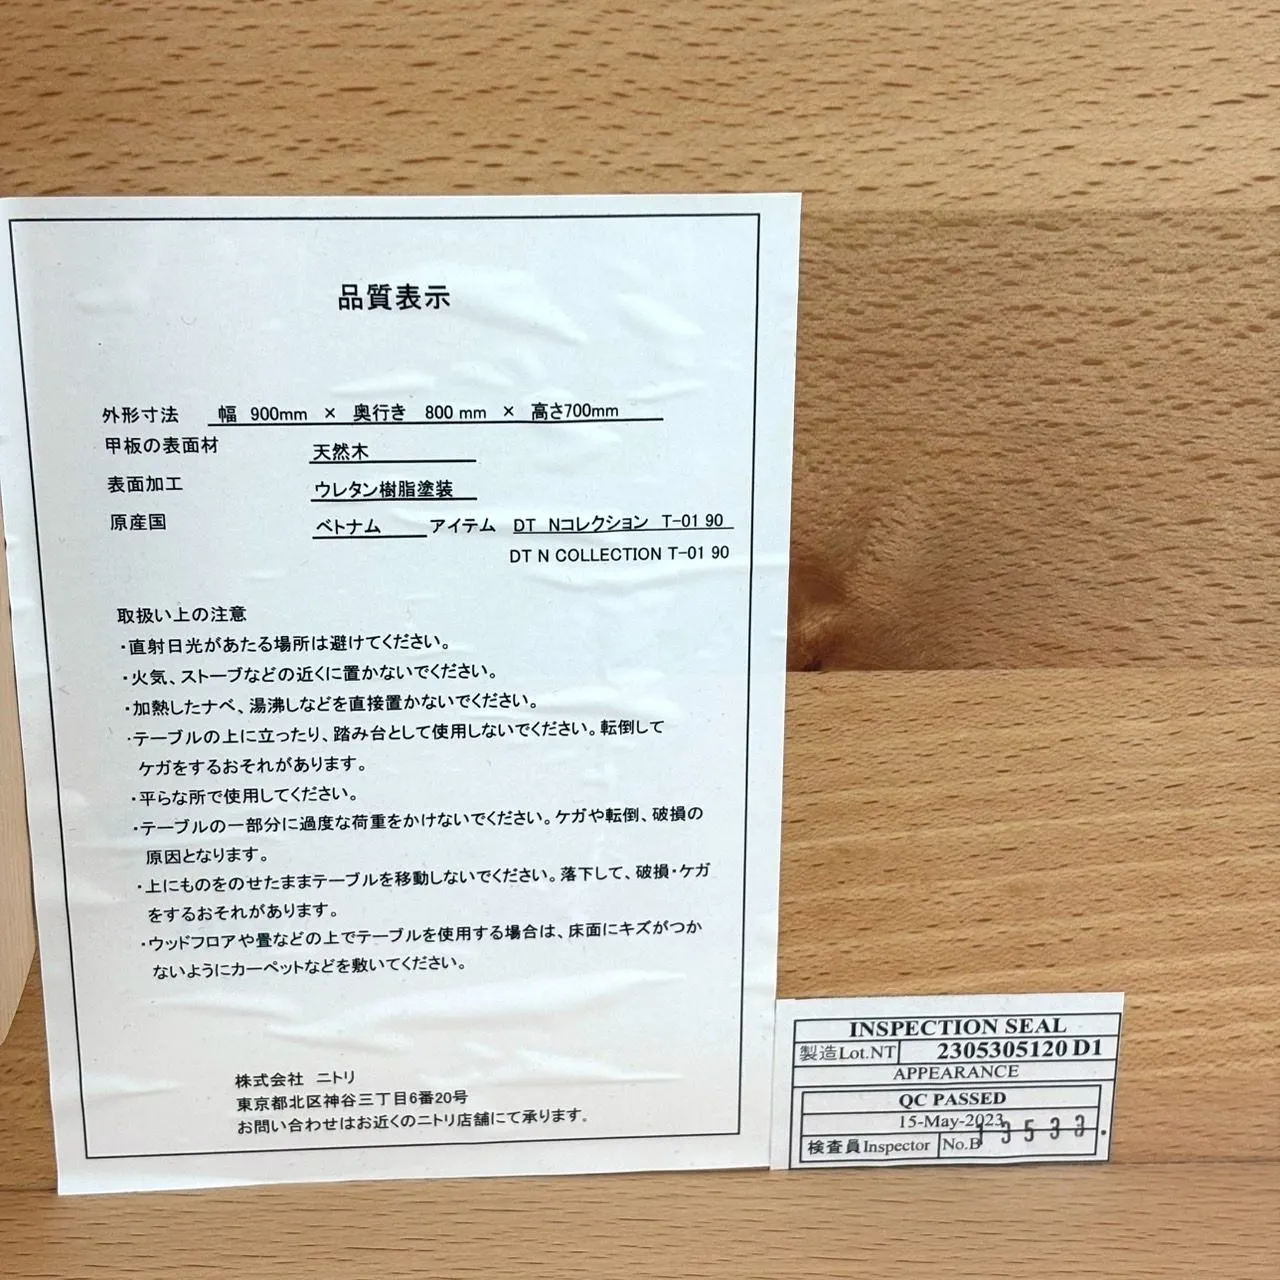 品質表示
外形寸法 幅 900mm × 奥行き 800 mm × 高さ700mm
甲板の表面材 天然木
表面加工 ウレタン樹脂塗装
原産国 ベトナム アイテム DT Nコレクション T-01 90
DT N COLLECTION T-01 90
取扱い上の注意
・直射日光があたる場所は避けてください。
・火気、ストーブなどの近くに置かないでください。
・加熱したナベ、湯沸しなどを直接置かないでください。
・テーブルの上に立ったり、踏み台として使用しないでください。転倒して
ケガをするおそれがあります。
・平らな所で使用してください。
・テーブルの一部分に過度な荷重をかけないでください。ケガや転倒、破損の
原因となります。
・上にものをのせたままテーブルを移動しないでください。落下して、破損・ケガ
をするおそれがあります。
・ウッドフロアや畳などの上でテーブルを使用する場合は、床面にキズがつか
ないようにカーペットなどを敷いてください。
株式会社 ニトリ
東京都北区神谷三丁目6番20号
お問い合わせはお近くのニトリ店舗にて承ります。
INSPECTION SEAL
製造Lot.NT 2305305120 D1
APPEARANCE
QC PASSED
15-May-2023
検査員Inspector No.B